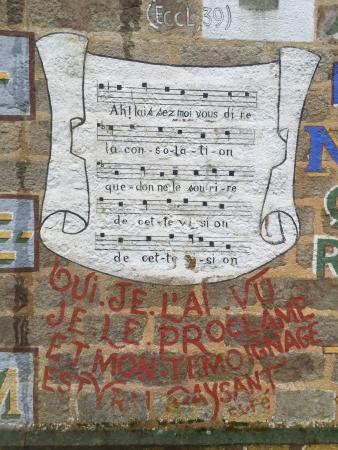 (Eccl, 39)
Ah! laissez moi vous dire
la con-so-la-ti-on
que-don ne le sou ri-re
de cet-te vi si on
de cet-te si on
OUI. JE. L'AI VU
JE. LE. PROCLAME
ET. MON. TEMOIGNAGE
EST VRAI PAYSANT
curé